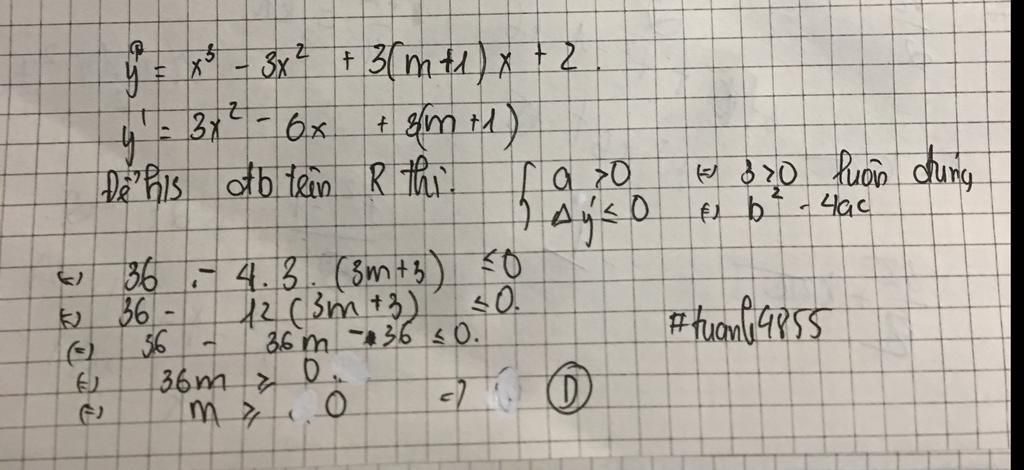 y = x³ - 3x² + 3(m+1)x + 2.
y' = 3x² - 6x + 3(m+1)
Để h/s đb trên R thì. { a > 0 (=) 3 > 0 luôn đúng
Δy' ≤ 0 (=) b² - 4ac
(=) 36 - 4.3.(3m+3) ≤ 0
(=) 36 - 12(3m+3) ≤ 0.
(=) 36 - 36m - 36 ≤ 0.
(=) 36m ≥ 0.
(=) m ≥ 0 => D